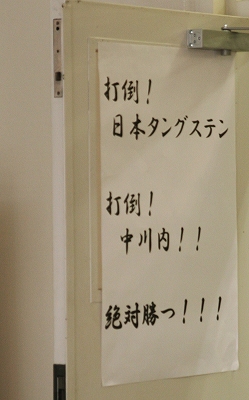 打倒！
日本タングステン
打倒！
中川内！！
絶対勝つ！！！